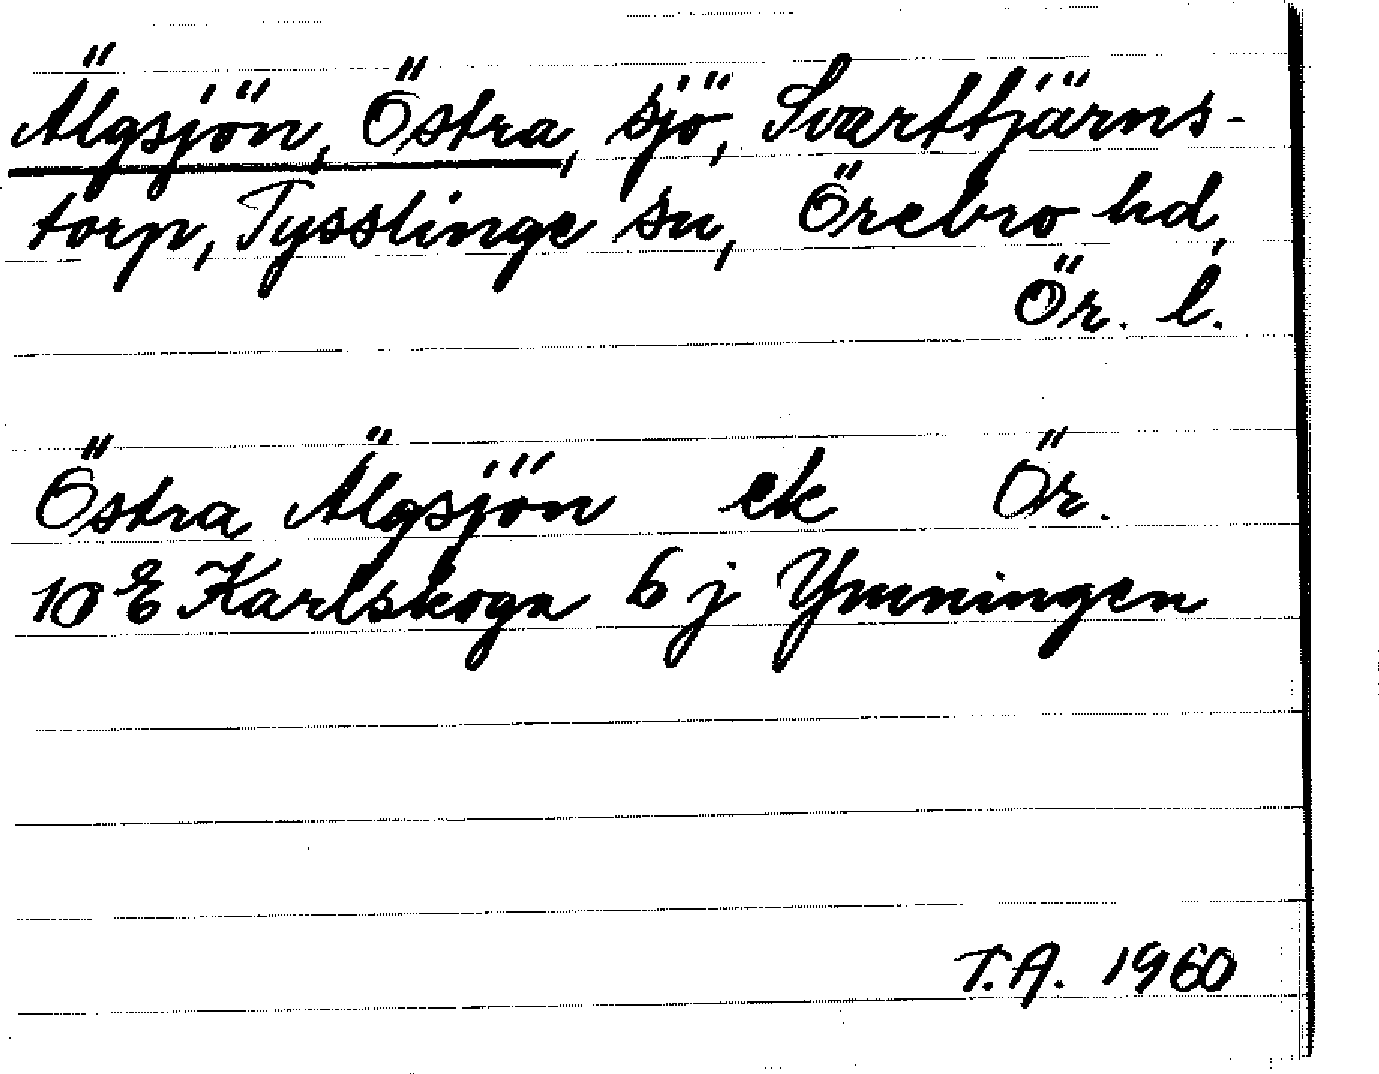 Älgsjön, Östra, sjö, Svarttjärns-
torp, Tysslinge sn, Örebro hd,
Ör. l.
Östra Älgsjön ek Ör.
10 E Karlskoga 6 j Ymningen
T.A. 1960